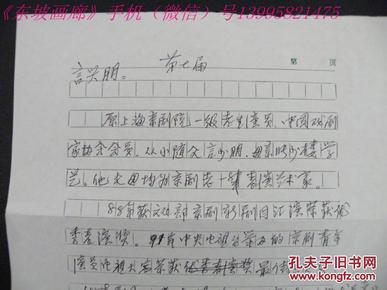 《东坡画廊》手机(微信)号13995821475
言兴朋。 第七届
第 页
原上海京剧院一级老生演员、中国戏剧
家协会会员。从小随父言少朋、母张少楼学
艺。他父母均为京剧
88年获文化部京剧新剧目汇演荣获优
秀表演奖。91年中央电视台举办的京剧青年
演员电视大赛荣获优秀表演奖最佳
孔夫子旧书网